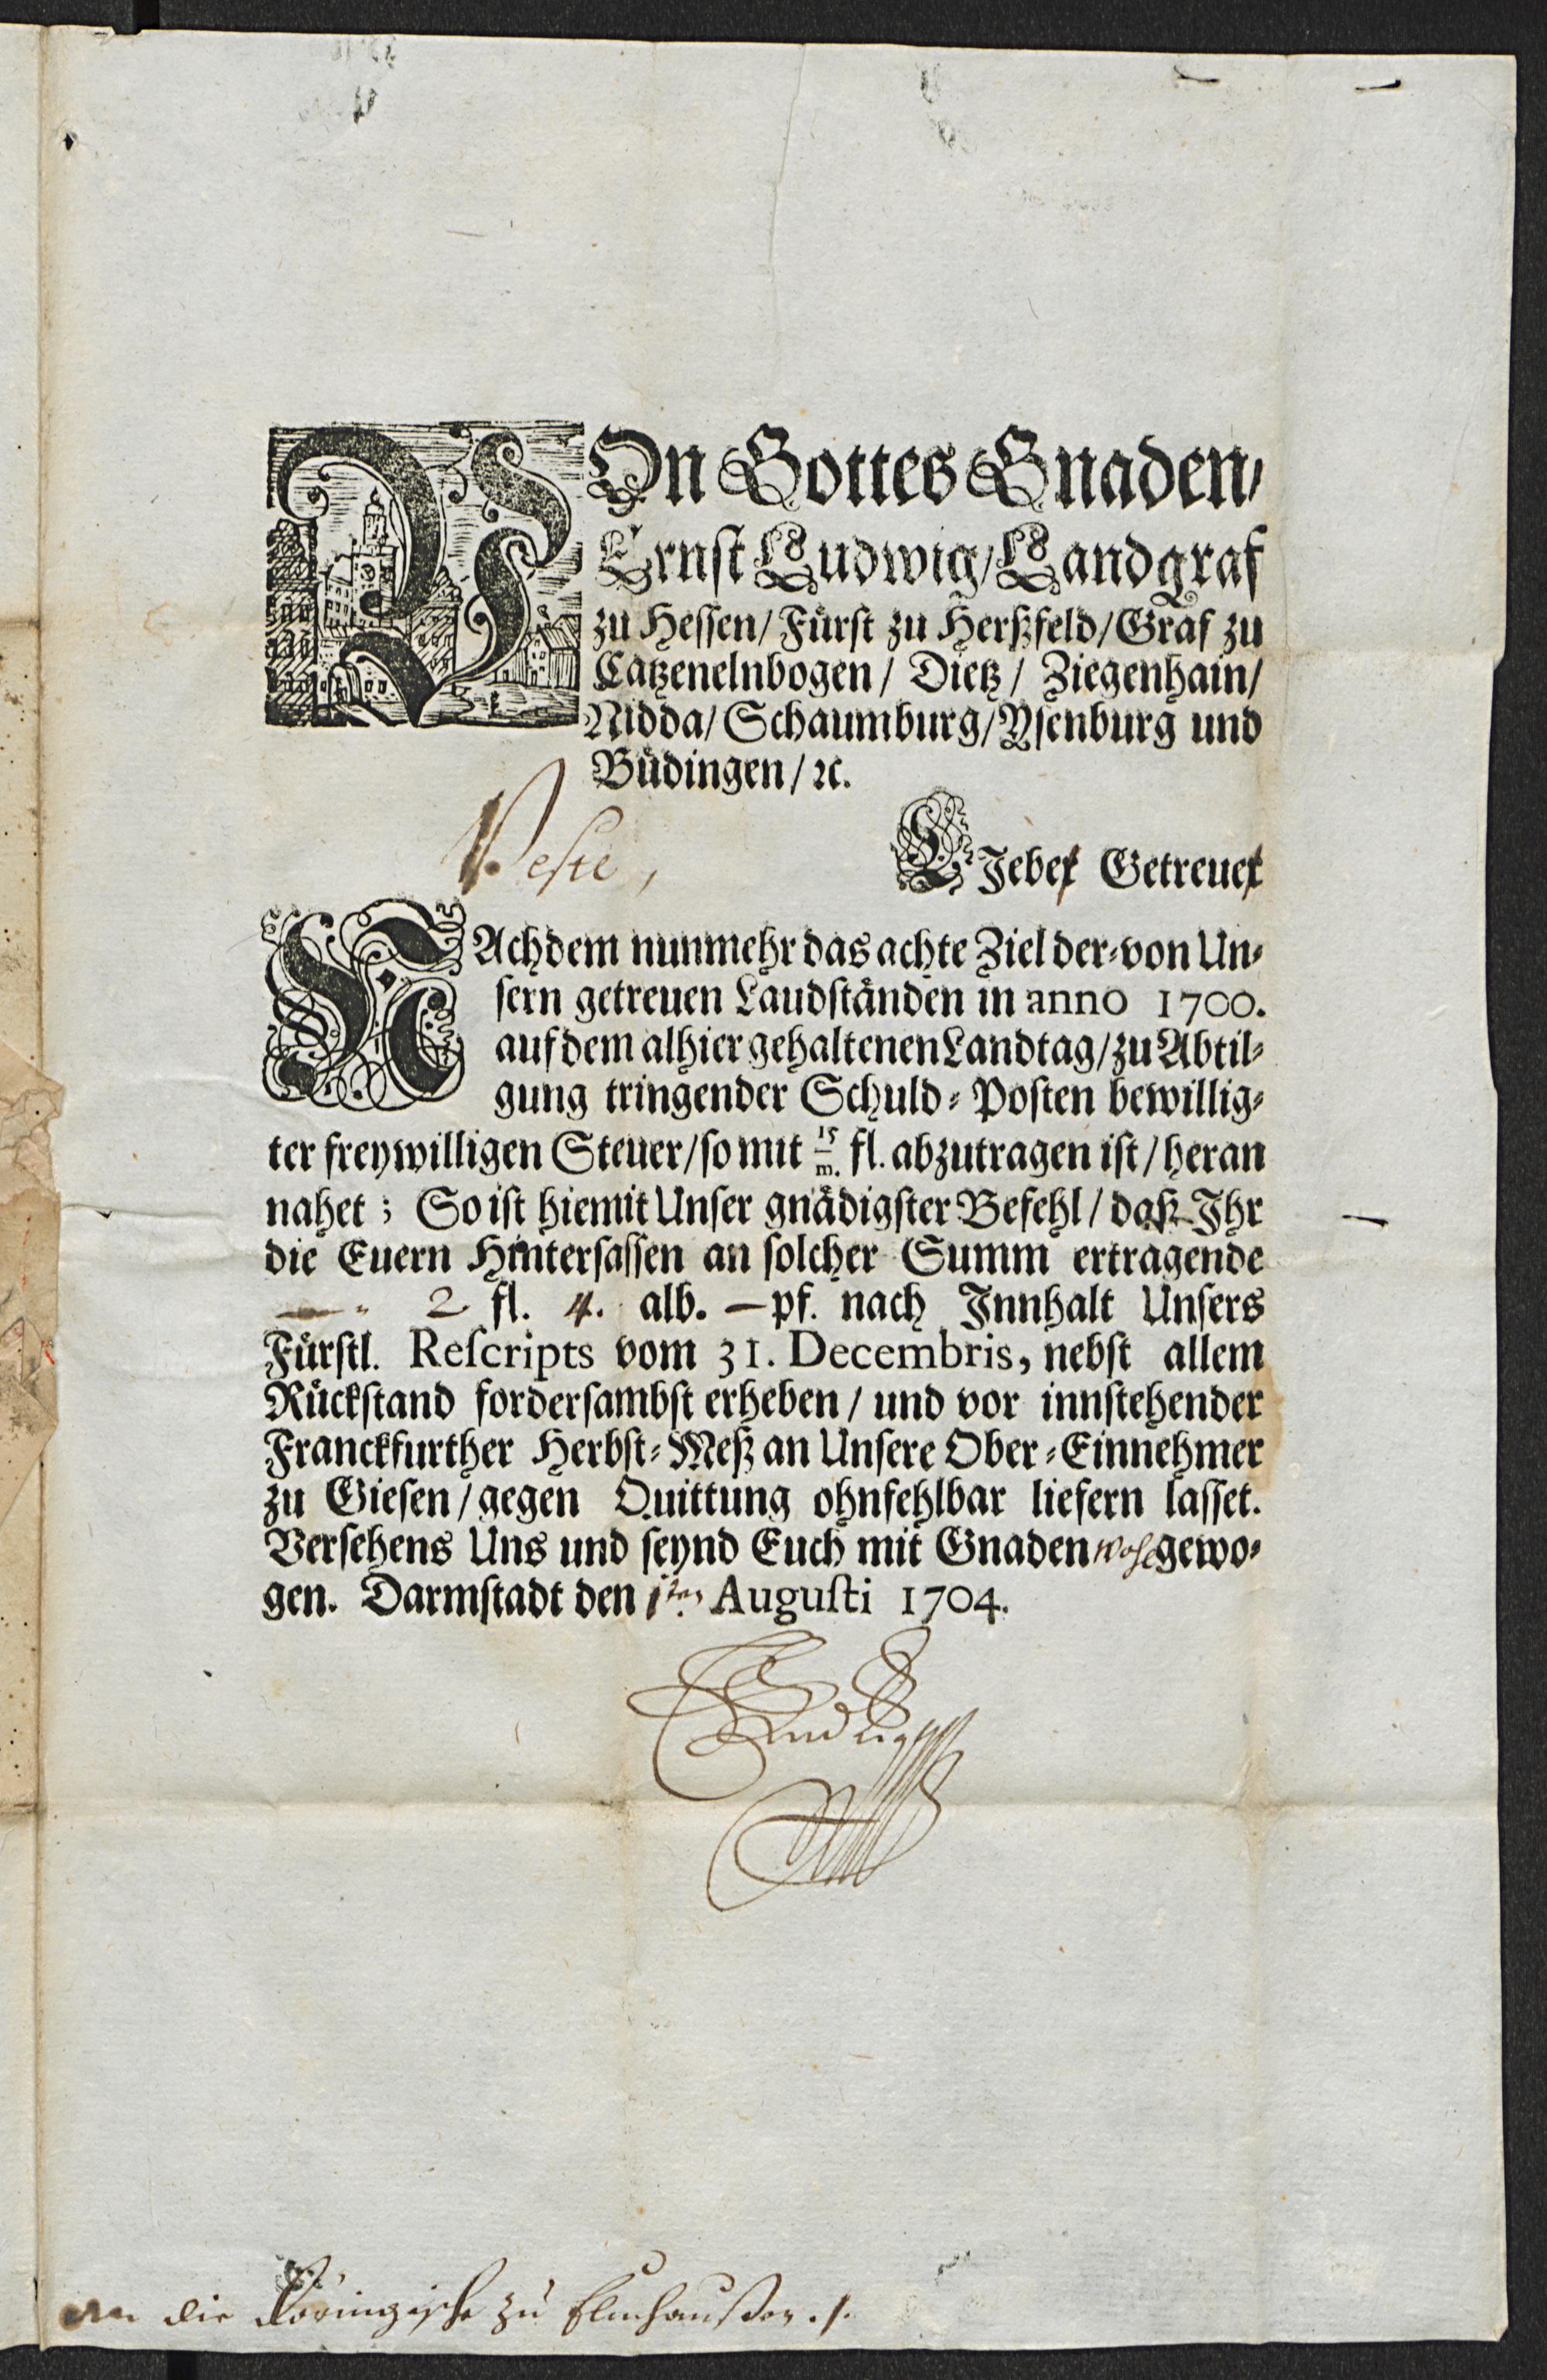 VOn Gottes Gnaden/
Ernst Ludwig/ Landgraf
zu Hessen/ Fürst zu Herßfeld/ Graf zu
Catzenelnbogen/ Dietz/ Ziegenhain/
Nidda/ Schaumburg/ Ysenburg und
Büdingen/ ꝛc.
Veste, LIebe Getreue
NAchdem nunmehr das achte Ziel der-von Un-
sern getreuen Laudständen in anno 1700.
auf dem alhier gehaltenen Landtag/ zu Abtil-
gung tringender Schuld-Posten bewillig-
ter freywilligen Steuer/ so mit 15/m. fl. abzutragen ist/ heran
nahet; So ist hiemit Unser gnädigster Befehl/ daß Ihr
die Euern Hintersassen an solcher Summ ertragende
— 2 fl. 4. alb. — pf. nach Innhalt Unsers
Fürstl. Rescripts vom 31. Decembris, nebst allem
Rückstand fordersambst erheben/ und vor innstehender
Franckfurther Herbst-Meß an Unsere Ober-Einnehmer
zu Giesen/ gegen Quittung ohnfehlbar liefern lasset.
Versehens Uns und seynd Euch mit Gnaden wohl gewo-
gen. Darmstadt den 1ten Augusti 1704.
ELudwig
An die zu